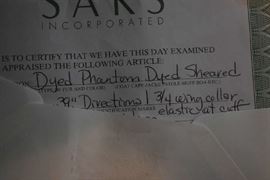 SAKS
INCORPORATED
IS TO CERTIFY THAT WE HAVE THIS DAY EXAMINED
APPRAISED THE FOLLOWING ARTICLE:
Dyed Phantom Dyed Sheared
39" Directional 3/4 wing collar
elastic at cuff